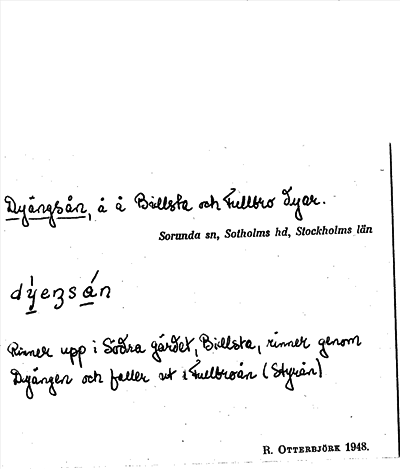 Dyängsån, å å Billsta och Fullbro dyar.
Sorunda sn, Sotholms hd, Stockholms län
Rinner upp i Södra gärdet, Billsta, rinner genom
Dyängen och faller ut i Fullbroån (Styrån)
R. OTTERBJÖRK 1948.